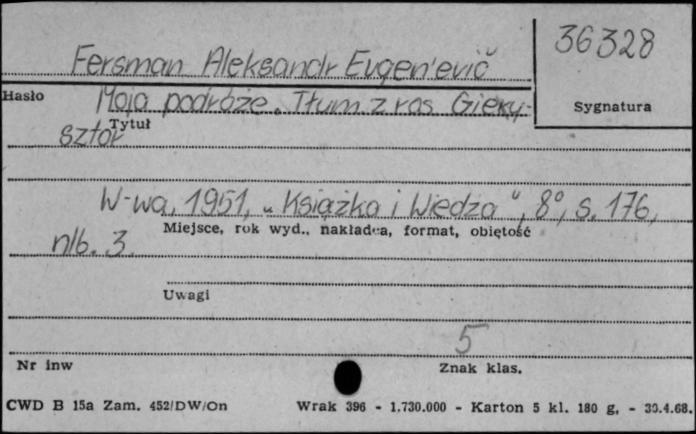 36328
Fersman Aleksandr Evgen'evič
Hasło
Moja podróże. Tłum. z ros Gieky-
Sygnatura
sztor
Tytuł
W-wa, 1951, „Książka i Wiedza", 8°, s. 176,
Miejsce, rok wyd., nakładca, format, objętość
nlb. 3.
Uwagi
5
Nr inw
Znak klas.
CWD B 15a Zam. 452/DW/On
Wrak 396 - 1.730.000 - Karton 5 kl. 180 g. - 30.4.68.